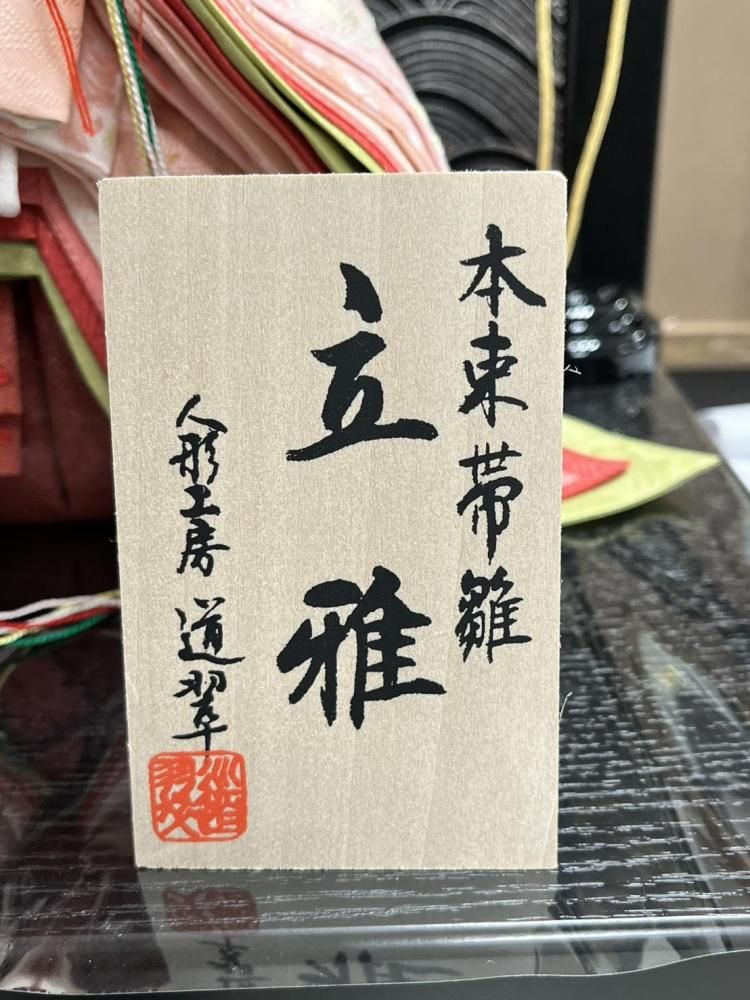 本束帯雛
立雅
人形工房 道翠